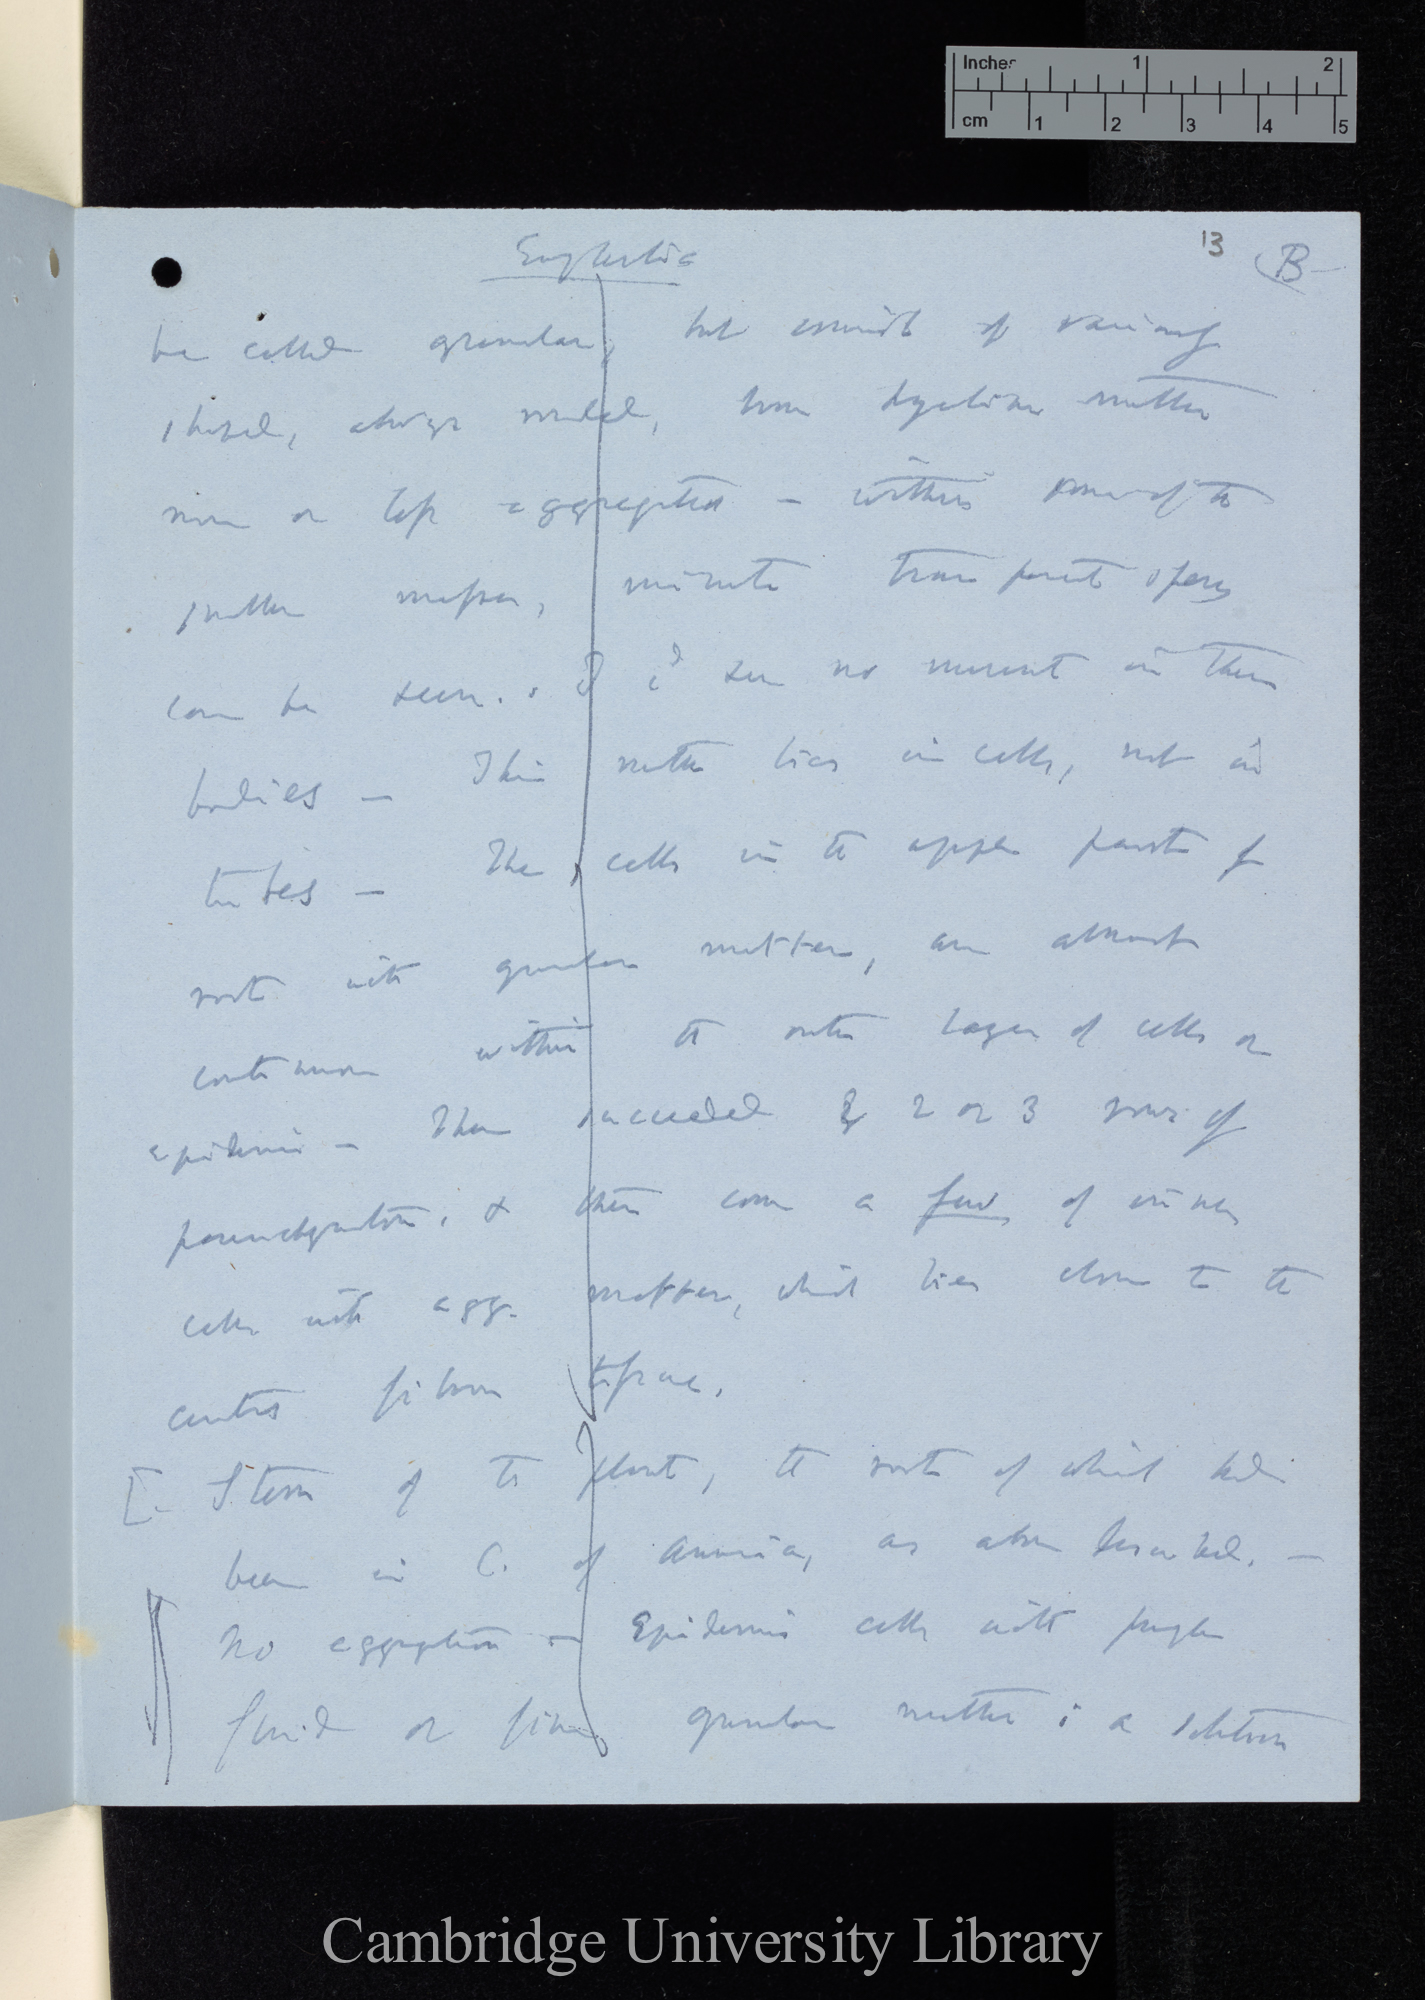 Inches 1 2
cm 1 2 3 4 5
13 B
be called granular, but consist of variously
shaped, always rounded, brown hyaline matter
more or less aggregated — within some of the
smaller masses, minute transparent spheres
can be seen. I cd see no movement in these
bodies — This matter lies in cells, not in
tubes — The cells in the upper parts of
roots with granular matter, are almost
continuous within the outer layer of cells or
epidermis — Then succeeded by 2 or 3 rows of
parenchymatous, & then come a few of inner
cells with agg. matter, which lies close to the
central fibrous tissue.
[Stem of the plant, the roots of which had
been in C. of Ammonia, as above described. —
No aggregation — Epidermis cells with purple
fluid or fine granular matter is a
Cambridge University Library